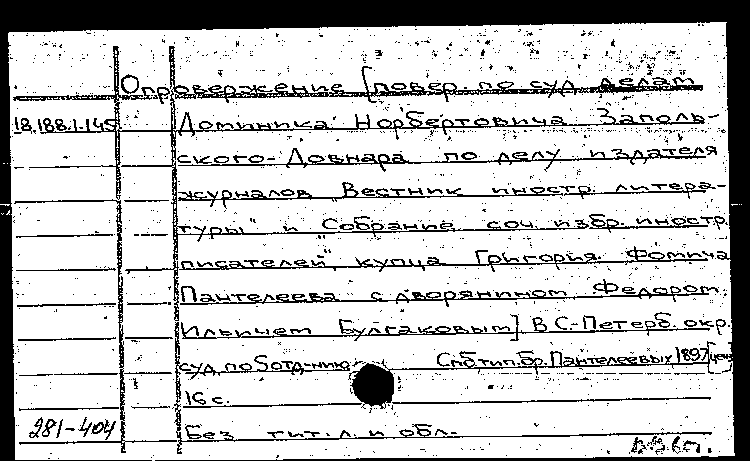 Опровержение [повер. по суд делам
18.188.1.145
Доминика Норбертовича Заполь-
ского-Довнара по делу издателя
журналов „Вестник иностр. литера-
туры" и „Собрание соч. избр. иностр.
писателей", купца Григория Фомича
Пантелеева с дворянином Федором
Ильичем Булгаковым] В С.-Петерб. окр.
суд по 5 отд-нию Спб, тип. бр. Пантелеевых 1897 [ценз]
16 с.
281-404 Без тит. л. и обл.